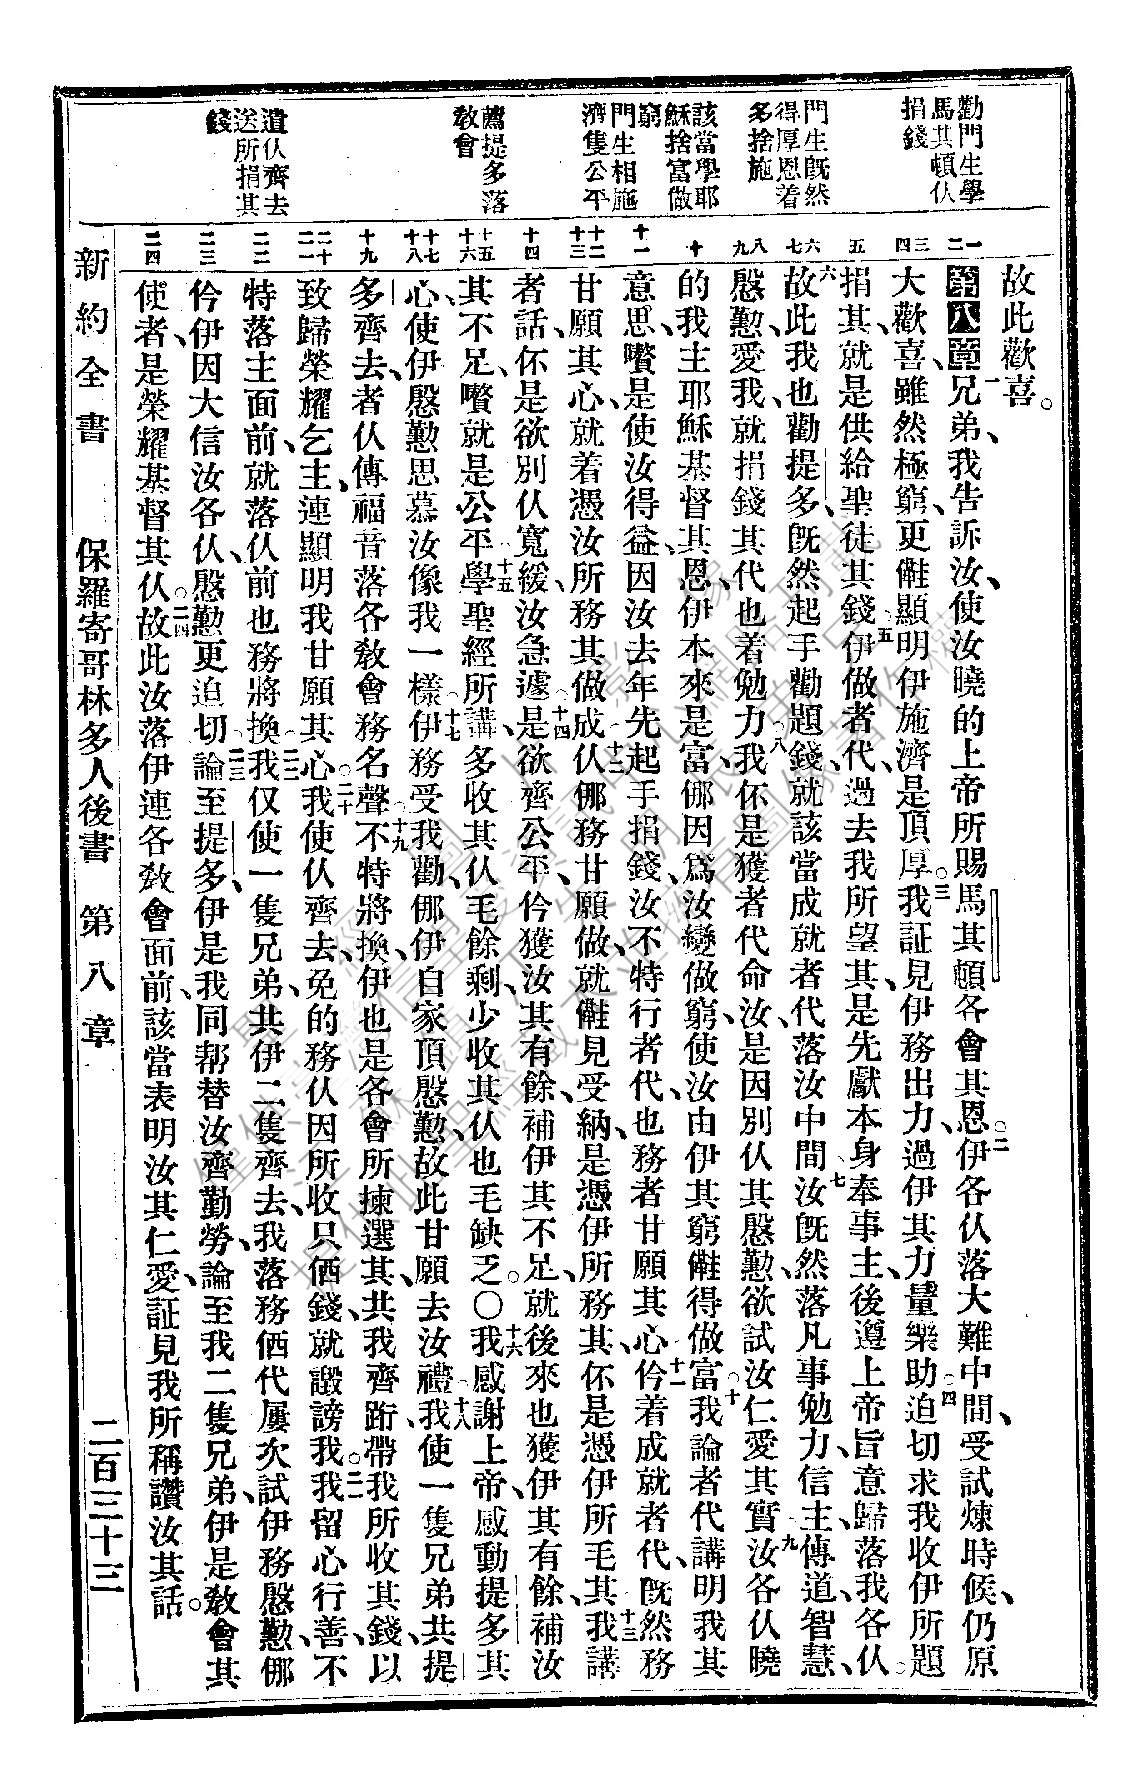 勸門生學
馬其頓仸
捐錢
門生旣然
得厚恩着
多捨施
該當學耶
穌捨富做
窮
門生相施
濟隻公平
薦提多落
敎會
遺仸齊去
送所捐其
錢
故此歡喜。
第八章一兄弟、我告訴汝、使汝曉的上帝所賜馬其頓各會其恩。二伊各仸落大難中間、受試煉時候、仍原
大歡喜、雖然極窮、更僌顯明伊施濟是頂厚。三我証見伊務出力、過伊其力量、樂助。四迫切求我收伊所題
捐其、就是供給聖徒其錢、五伊做者代、過去我所望其、是先獻本身奉事主、後遵上帝旨意、歸落我各仸。
六故此我也勸提多、旣然起手勸題錢、就該當成就者代、落汝中間、七汝旣然落凡事勉力、信主、傳道、智慧、
慇懃、愛我、就捐錢其代也着勉力、八我伓是獲者代命汝、是因別仸其慇懃、欲試汝仁愛其實、九汝各仸曉
的我主耶穌基督其恩、伊本來是富、㑚因爲汝變做窮、使汝由伊其窮僌得做富。十我論者代、講明我其
意思、嚽是使汝得益、因汝去年先起手捐錢、汝不特行者代、也務者甘願其心、十一伱着成就者代、旣然務
甘願其心、就着憑汝所務其做成、十二仸㑚務甘願做、就僌見受納、是憑伊所務其、伓是憑伊所毛其、十三我講
者話、伓是欲別仸寬緩、汝急遽、十四是欲齊公平、伱獲汝其有餘、補伊其不足、就後來也獲伊其有餘、補汝
其不足、嚽就是公平、十五學聖經所講、多收其仸毛餘剩、少收其仸也毛缺乏。〇十六我感謝上帝、感動提多其
心、使伊慇懃思慕汝、像我一樣、十七伊務受我勸、㑚伊自家頂慇懃、故此甘願去汝禮、十八我使一隻兄弟共提
多齊去、者仸傳福音、落各敎會務名聲、十九不特將換、伊也是各會所揀選其、共我齊跔、帶我所收其錢、以
致歸榮耀乞主、連顯明我甘願其心。二十我使仸齊去、免的務仸因所收只𠲥錢、就譭謗我。二一我留心行善、不
特落主面前、就落仸前也務將換、二二我仅使一隻兄弟、共伊二隻齊去、我落務𠲥代、屢次試伊務慇懃、㑚
伱伊因大信汝各仸、慇懃更迫切。二三論至提多、伊是我同帮、替汝齊勤勞、論至我二隻兄弟、伊是敎會其
使者、是榮耀基督其仸。二四故此汝落伊連各敎會面前、該當表明汝其仁愛、証見我所稱讚汝其話。
新約全書 保羅寄哥林多人後書 第八章 二百三十三